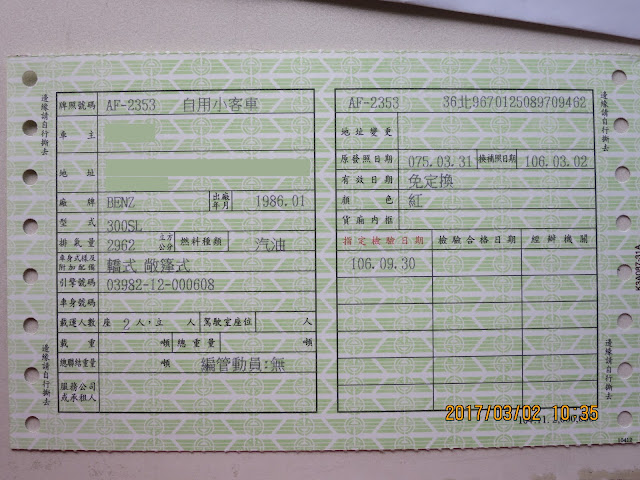 邊緣請自行撕去
牌照號碼 AF-2353 自用小客車
車主
地址
廠牌 BENZ 出廠年月 1986.01
型式 300SL
排氣量 2962 立方公分 燃料種類 汽油
車身式樣及附加配備 轎式 敞篷式
引擎號碼 03982-12-000608
車身號碼
載運人數 座 2 人,立 人 駕駛室座位 人
載重 噸 總重量 噸
總聯結重量 噸 編管動員:無
服務公司或承租人
邊緣請自行撕去
AF-2353 36北9670125089709462
地址變更
原發照日期 075.03.31 換補照日期 106.03.02
有效日期 免定換
顏色 紅
貨廂內框
指定檢驗日期 檢驗合格日期 經辦機關
106.09.30
邊緣請自行撕去
邊緣請自行撕去
2017/03/02 10:35